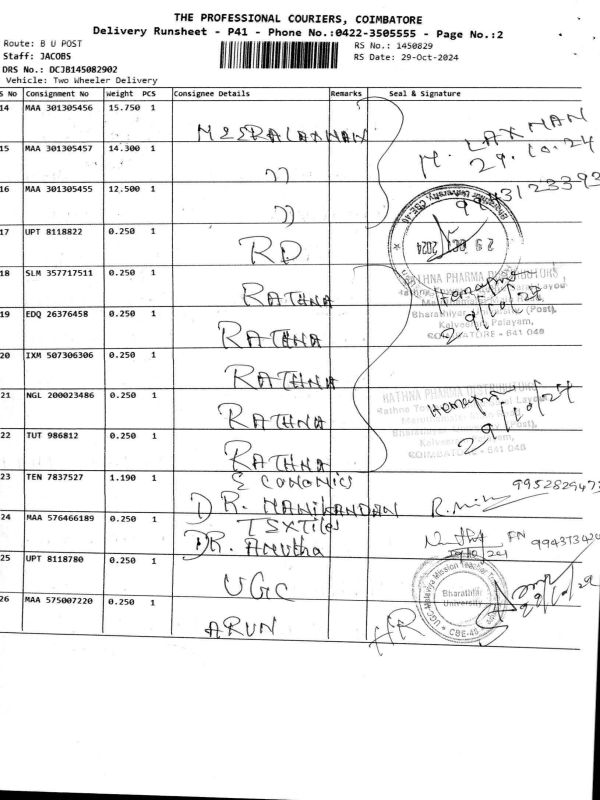 THE PROFESSIONAL COURIERS, COIMBATORE
Delivery Runsheet - P41 - Phone No.:0422-3505555 - Page No.:2
Route: B U POST
RS No.: 1450829
Staff: JACOBS
RS Date: 29-Oct-2024
DRS No.: DCJB145082902
Vehicle: Two Wheeler Delivery
S No Consignment No Weight PCS Consignee Details Remarks Seal & Signature
14 MAA 301305456 15.750 1 MEERALAXMAN M. LAXMAN
29.10.24
15 MAA 301305457 14.300 1 ))
16 MAA 301305455 12.500 1 ))
Bharathiar University, CBE-46
29 OCT 2024
17 UPT 8118822 0.250 1 RD
18 SLM 357717511 0.250 1 RATHNA
RATHNA PHARMA DISTRIBUTORS
19 EDQ 26376458 0.250 1 RATHNA
Bharathiyar University (Post),
Kalveeram Palayam,
COIMBATORE - 641 046
29/10/24
20 IXM 507306306 0.250 1 RATHNA
21 NGL 200023486 0.250 1 RATHNA
RATHNA PHARMA DISTRIBUTORS
29/10/24
22 TUT 986812 0.250 1 RATHNA
COIMBATORE - 641 046
23 TEN 7837527 1.190 1 ECONOMICS
DR. MANIKANDAN
24 MAA 576466189 0.250 1 TEXTiles
DR. Anutha
25 UPT 8118780 0.250 1 UGC
UGC-Malaviya Mission Teacher
Bharathiar
University
CBE-46
26 MAA 575007220 0.250 1 ARUN